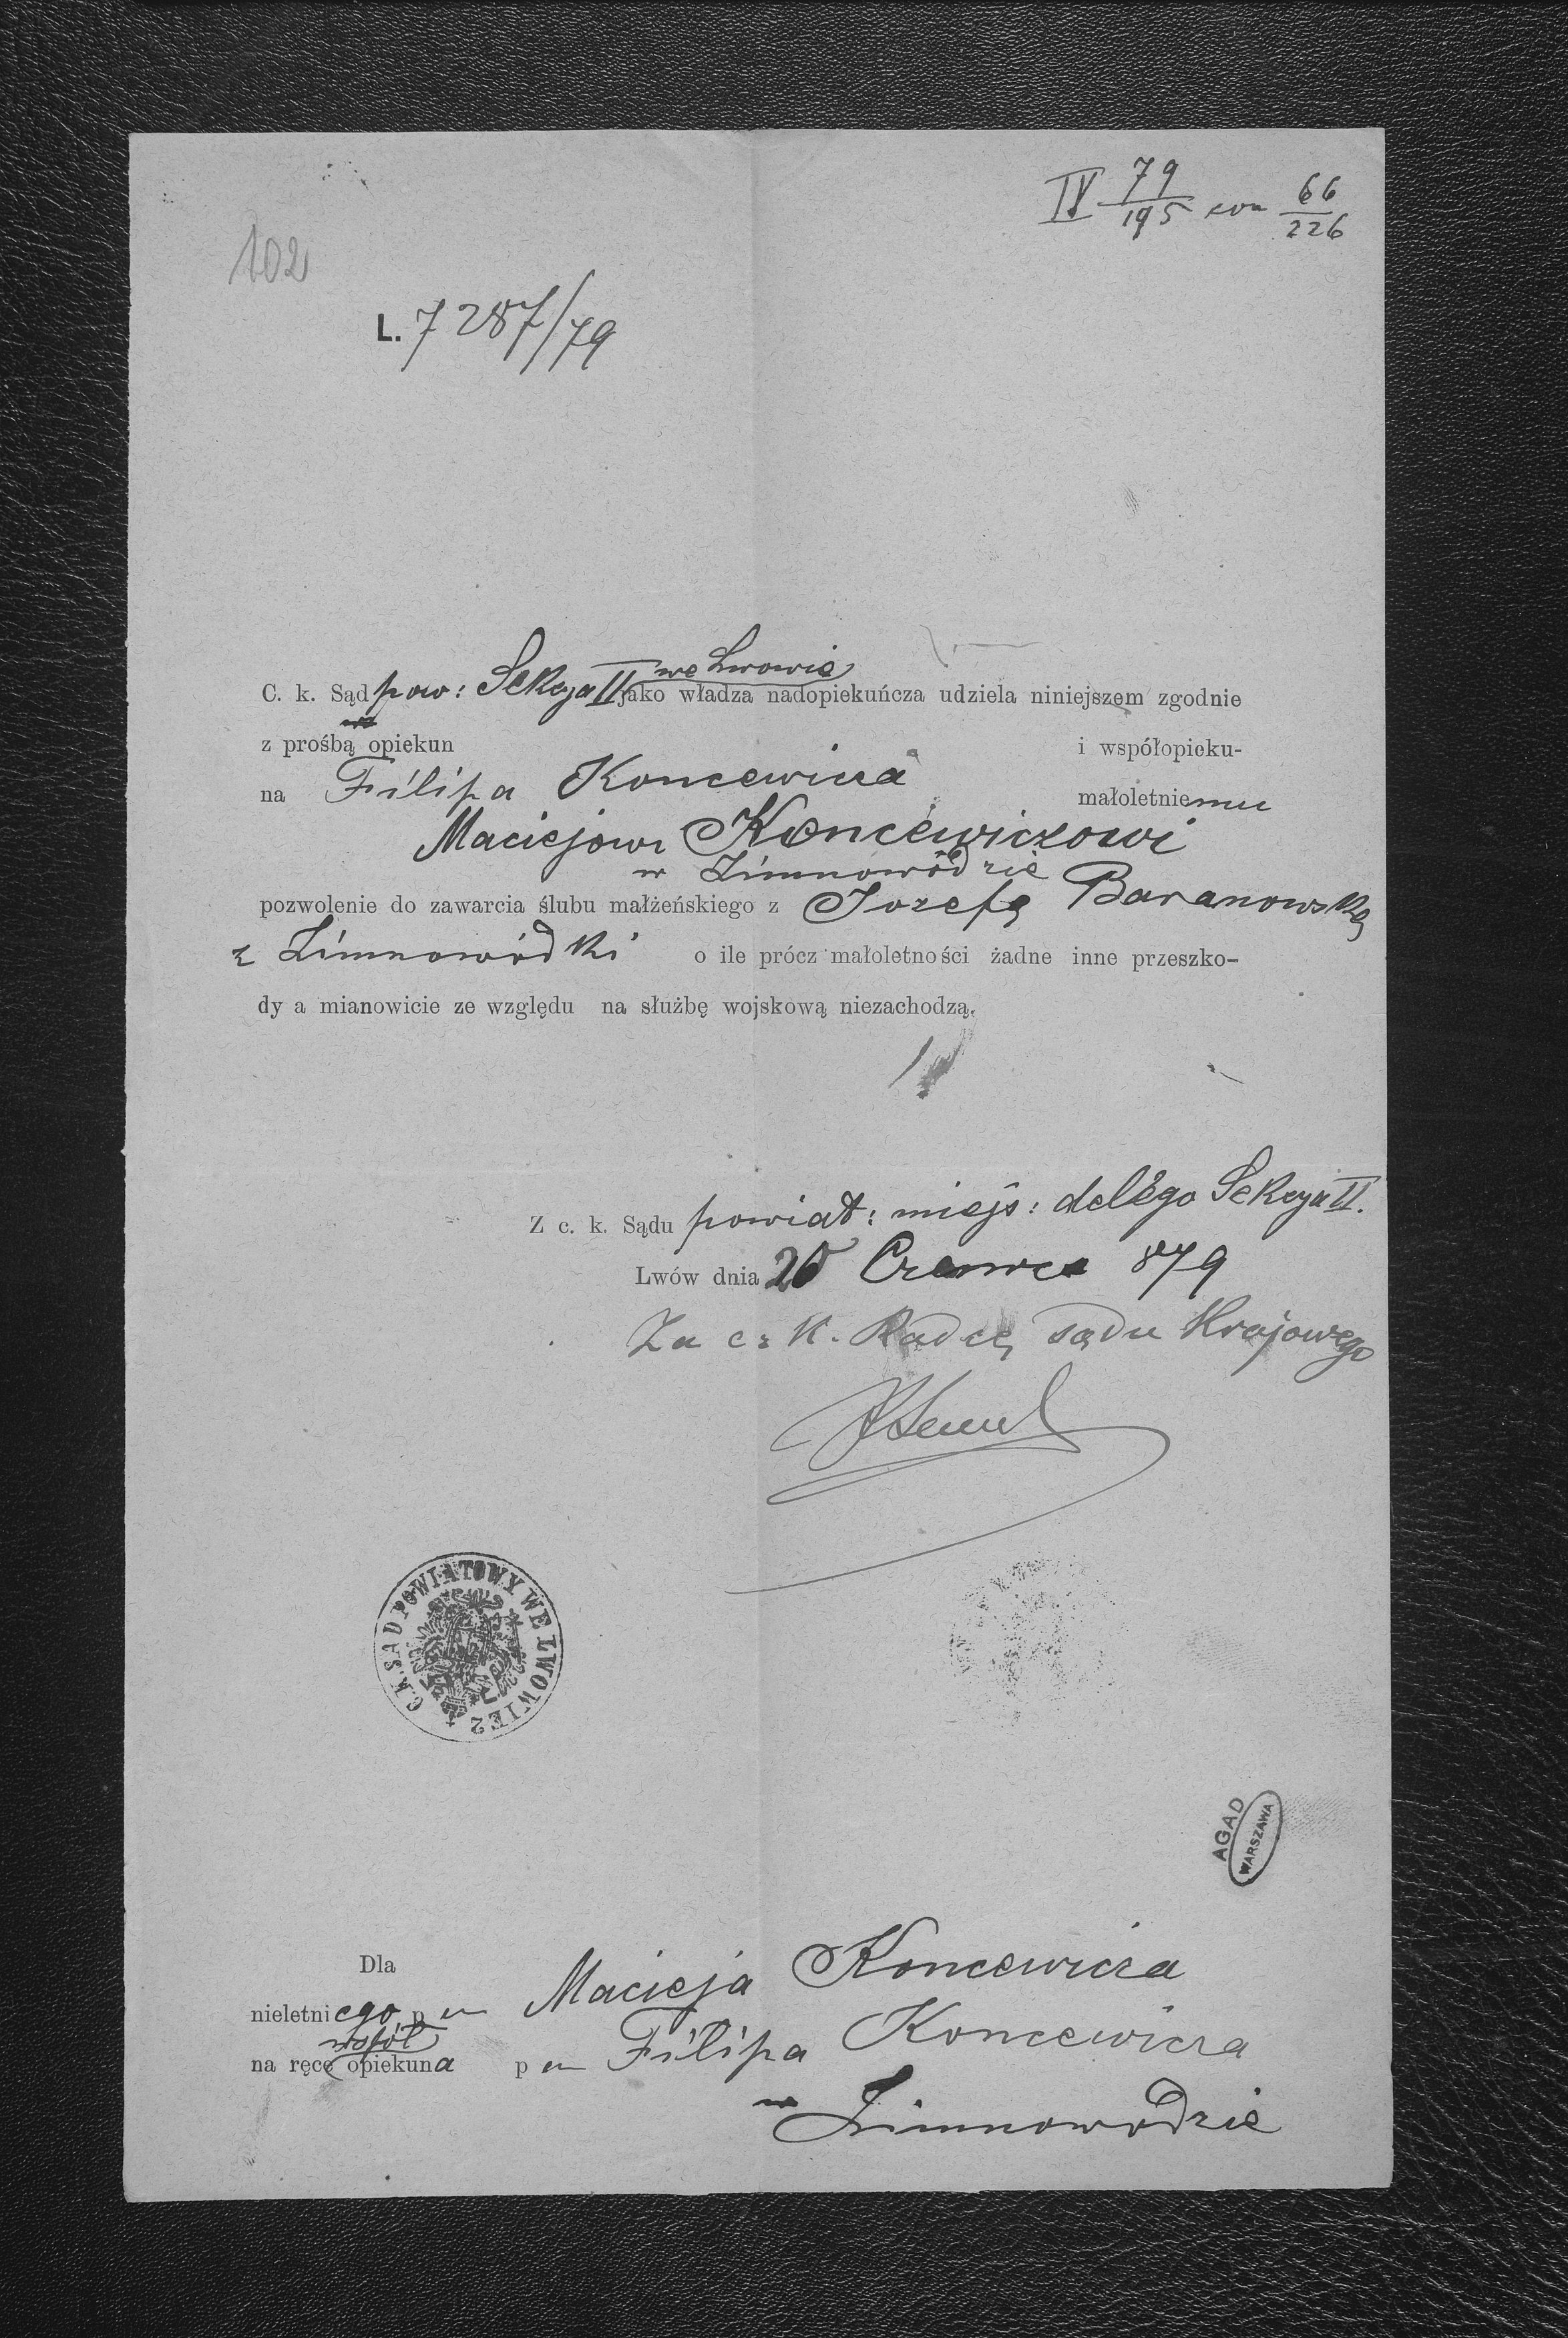 IV 79/195 con 66/226
102
L. 7287/79
we Lwowie
C. k. Sąd pow: Sekcya II jako władza nadopiekuńcza udziela niniejszem zgodnie
z prośbą opiekun i współopieku-
na Filipa Koncewicza małoletniemu
Maciejowi Koncewiczowi
w Zimnowódzie
pozwolenie do zawarcia ślubu małżeńskiego z Jozefą Baranowską
z Zimnowódki o ile prócz małoletności żadne inne przeszko-
dy a mianowicie ze względu na służbę wojskową niezachodzą.
Z c. k. Sądu powiat: miejs: delego Sekcya II.
Lwów dnia Czerwca 879
Za c: k. Radcę sądu Krajowego
C.K. SĄD POWIATOWY WE LWOWIE 2
AGAD
WARSZAWA
Dla
nieletniego p Macieja Koncewicza
współ
na ręce opiekuna p Filipa Koncewicza
w Zimnowodzie